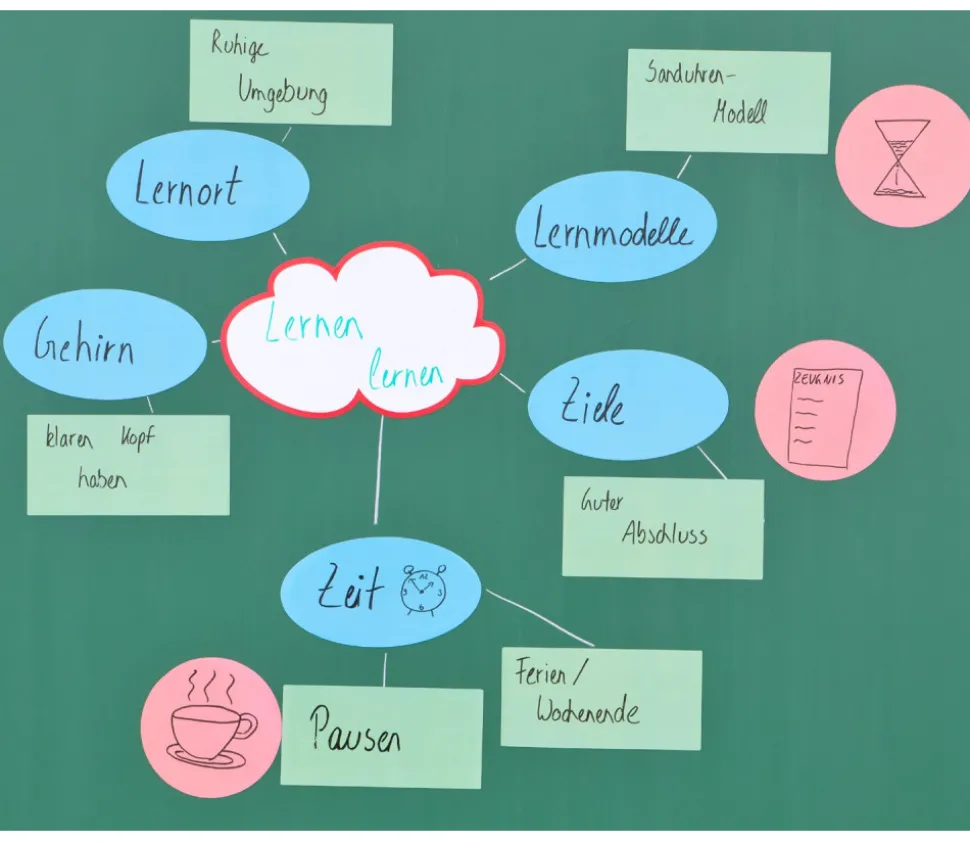 Ruhige
Umgebung
Lernort
Sanduhren-
Modell
Lernmodelle
Lernen
lernen
Gehirn
klaren Kopf
haben
Ziele
ZEUGNIS
Guter
Abschluss
Zeit
12
3
3
6
Pausen
Ferien /
Wochenende